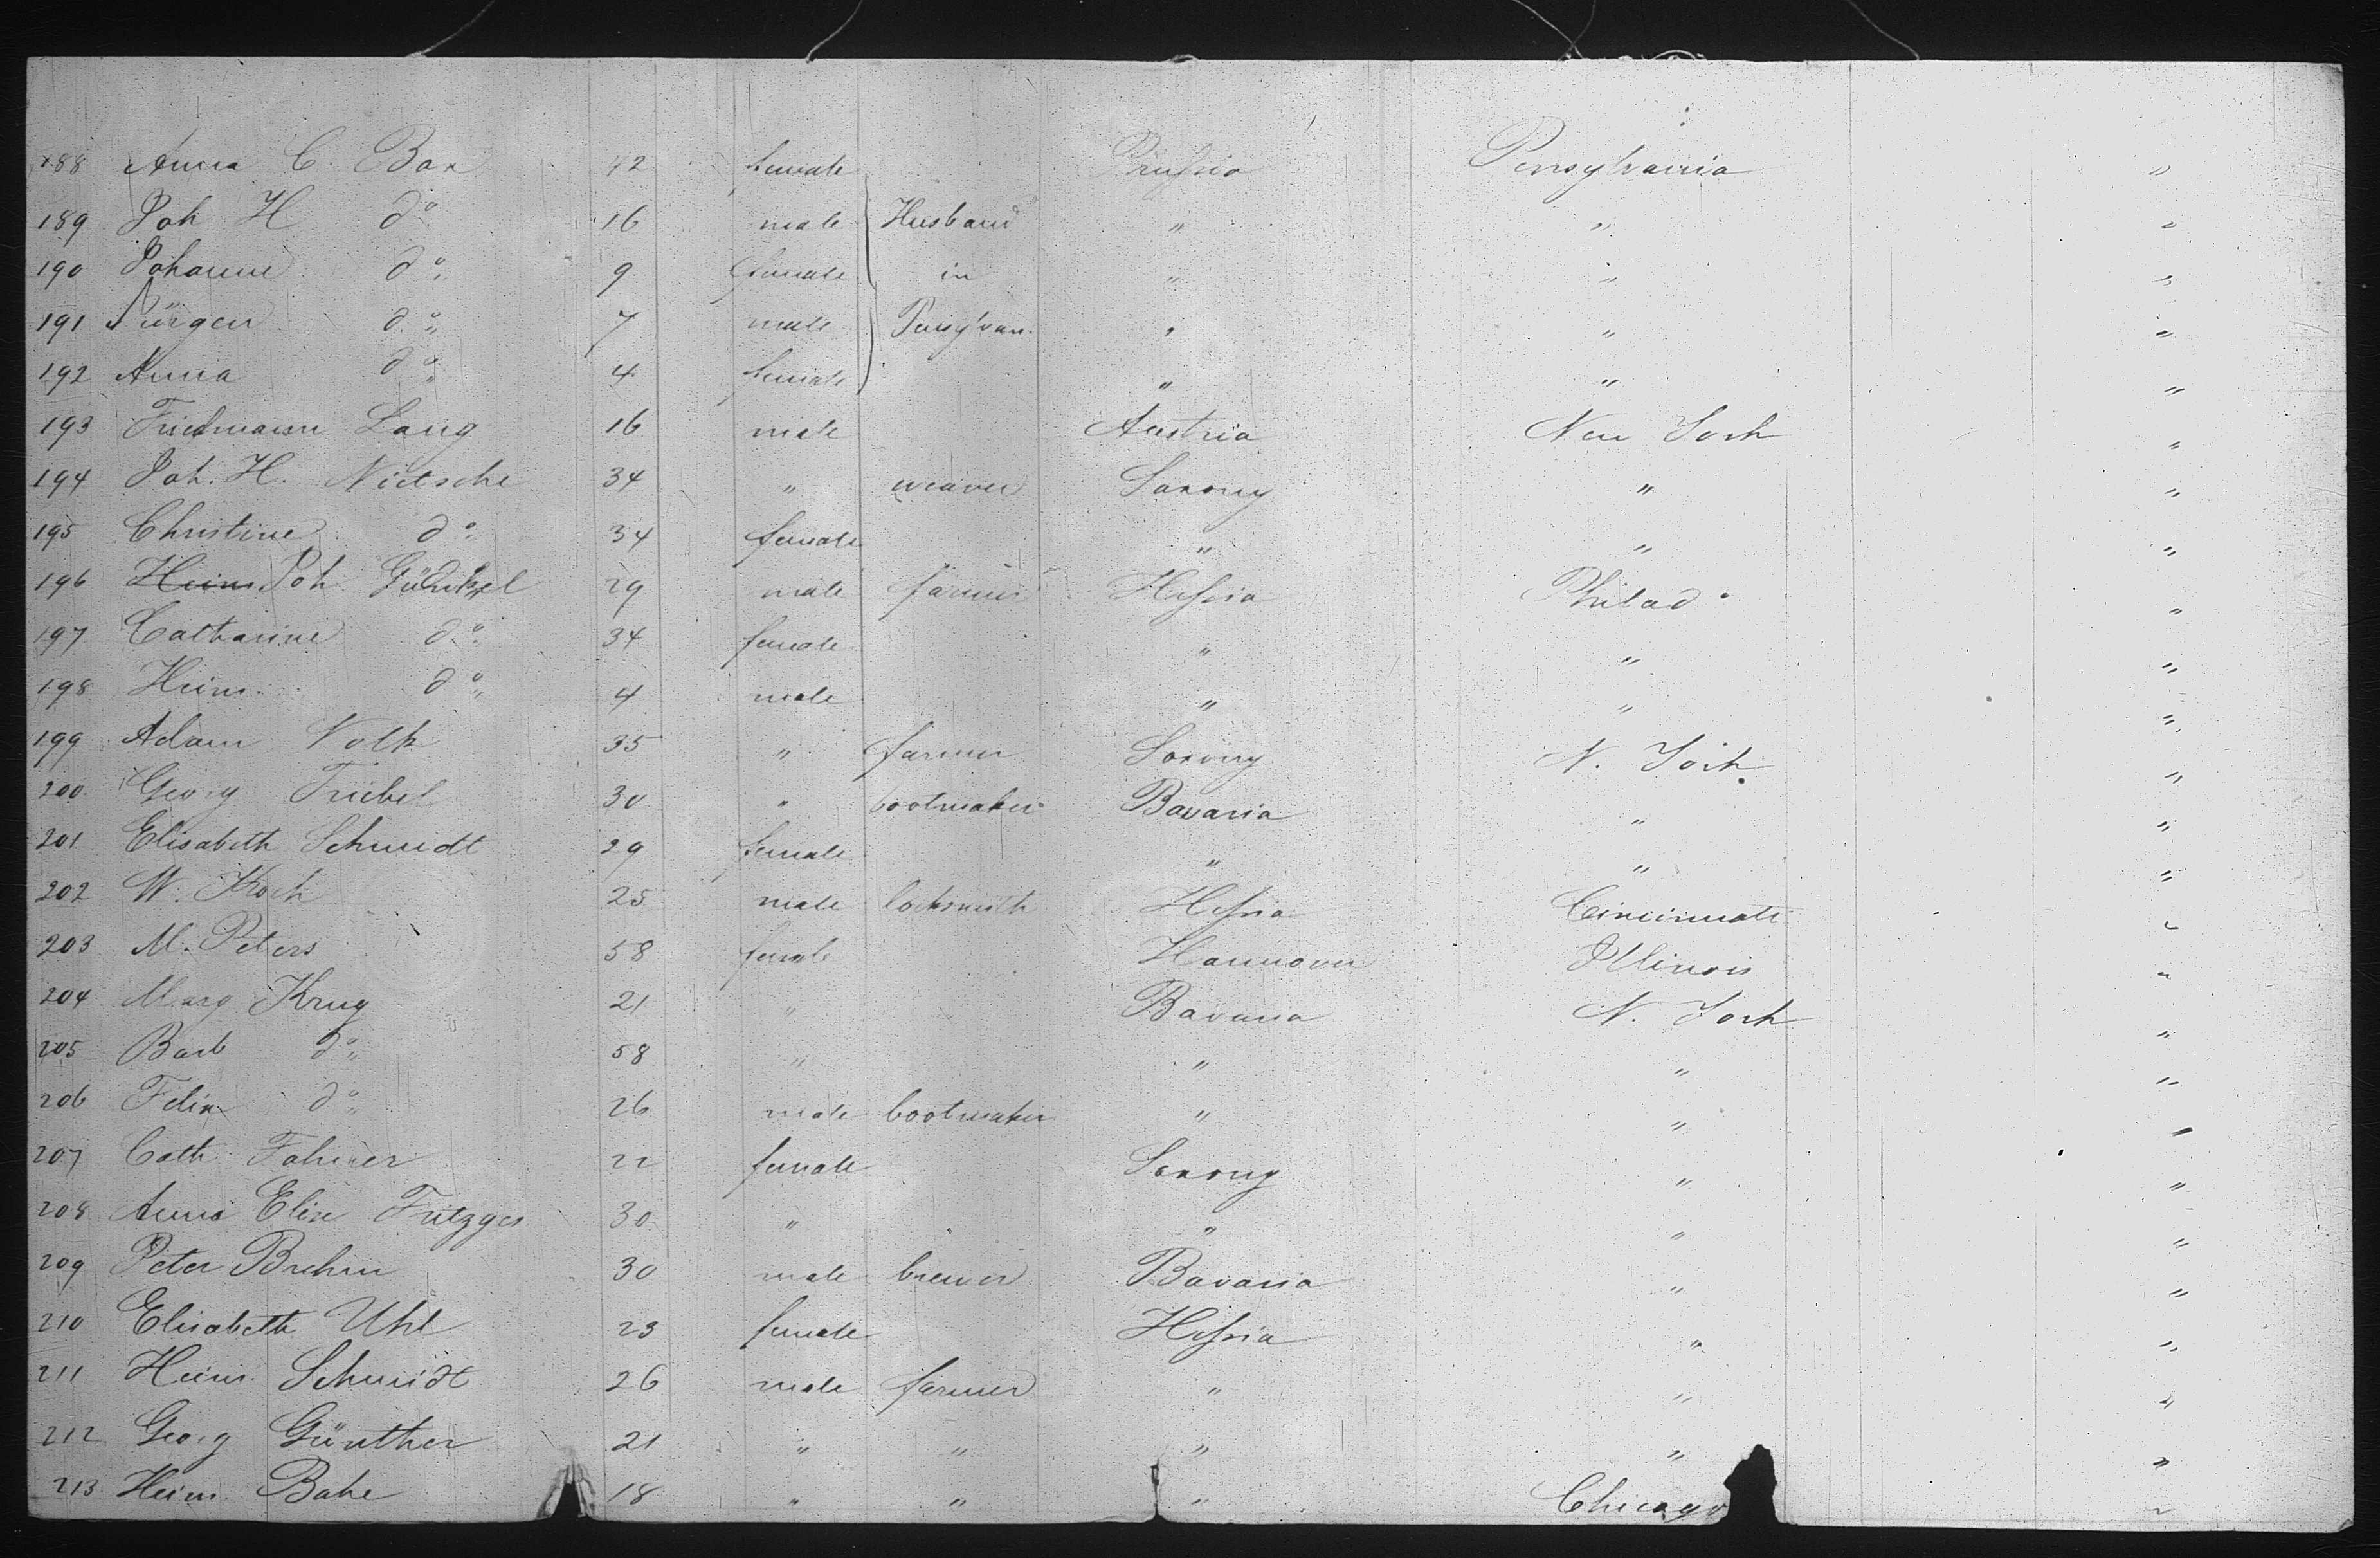 188 Anna C. Bax 42 female Prussia Pensylvania "
189 Joh H do 16 male Husband " " "
190 Johanne do 9 female in " " "
191 Jürgen do 7 male Pensylvan. " " "
192 Anna do 4 female " " "
193 Friedmann Lang 16 male Austria New York "
194 Joh. H. Nietsche 34 " weaver Saxony " "
195 Christine do 34 female " " "
196 Joh 29 male farmer Hessia Philad "
197 Catharine do 34 female " " "
198 Heinr. do 4 male " " "
199 Adam Volk 35 " farmer Saxony N. York "
200 Georg Triebel 30 " bootmaker Bavaria " "
201 Elisabeth Schmidt 29 female " " "
202 W. Koch 25 male locksmith Hessia Cincinnati "
203 M. Peters 58 female Hannover Illinois "
204 Marg Krug 21 " Bavaria N. York "
205 Barb do 58 " " " "
206 Felix do 26 male bootmaker " " "
207 Cath 22 female Saxony " "
208 Anna Elise 30 " " " "
209 Peter Brehm 30 male brewer Bavaria " "
210 Elisabeth Uhl 23 female Hessia " "
211 Heinr. Schmidt 26 male farmer " " "
212 Georg Günther 21 " " " " "
213 Heinr. Bake 18 " " " Chicago "